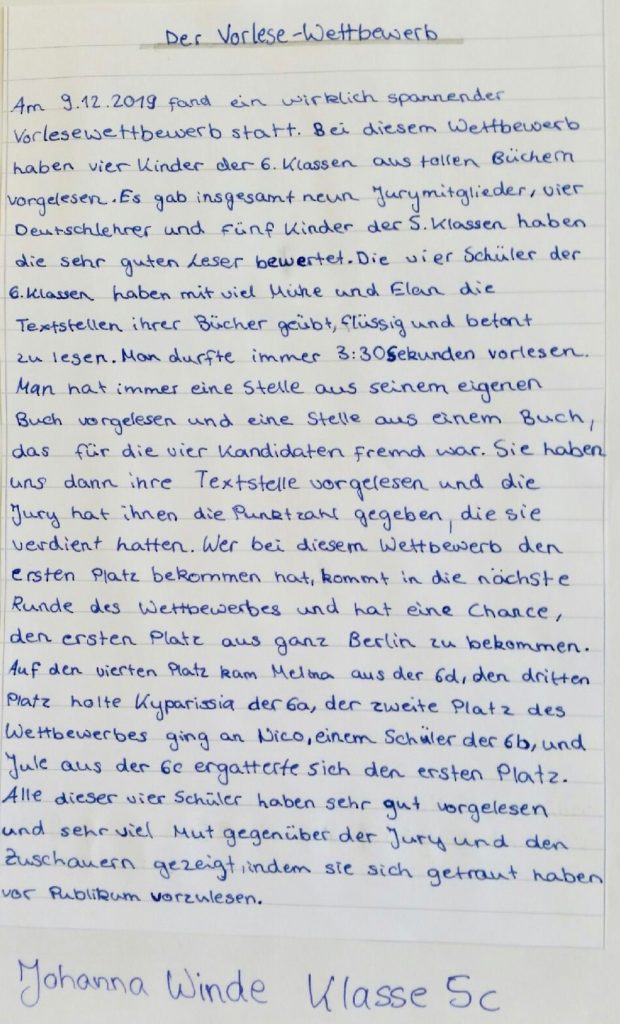 Der Vorlese-Wettbewerb
Am 9.12.2019 fand ein wirklich spannender
Vorlesewettbewerb statt. Bei diesem Wettbewerb
haben vier Kinder der 6. Klassen aus tollen Büchern
vorgelesen. Es gab insgesamt neun Jurymitglieder, vier
Deutschlehrer und fünf Kinder der 5. Klassen haben
die sehr guten Leser bewertet. Die vier Schüler der
6. Klassen haben mit viel Mühe und Elan die
Textstellen ihrer Bücher geübt, flüssig und betont
zu lesen. Man durfte immer 3:30 Sekunden vorlesen.
Man hat immer eine Stelle aus seinem eigenen
Buch vorgelesen und eine Stelle aus einem Buch,
das für die vier Kandidaten fremd war. Sie haben
uns dann ihre Textstelle vorgelesen und die
Jury hat ihnen die Punktzahl gegeben, die sie
verdient hatten. Wer bei diesem Wettbewerb den
ersten Platz bekommen hat, kommt in die nächste
Runde des Wettbewerbes und hat eine Chance,
den ersten Platz aus ganz Berlin zu bekommen.
Auf den vierten Platz kam Melina aus der 6d, den dritten
Platz holte Kyparissia der 6a, der zweite Platz des
Wettbewerbes ging an Nico, einem Schüler der 6b, und
Jule aus der 6c ergatterte sich den ersten Platz.
Alle dieser vier Schüler haben sehr gut vorgelesen
und sehr viel Mut gegenüber der Jury und den
Zuschauern gezeigt, indem sie sich getraut haben
vor Publikum vorzulesen.
Johanna Winde Klasse 5c